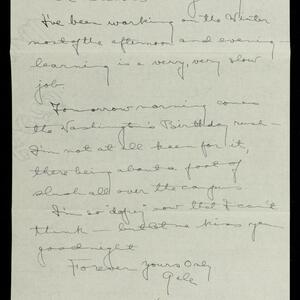 I've been working on the Writer
most of the afternoon and evening
learning is a very, very slow
job.
Tomorrow morning comes
the Washington's Birthday rush —
I'm not at all keen for it,
there being about a foot of
slush all over the campus
I'm so "dopey" now that I can't
think — but let me kiss you
goodnight
Forever yours Only